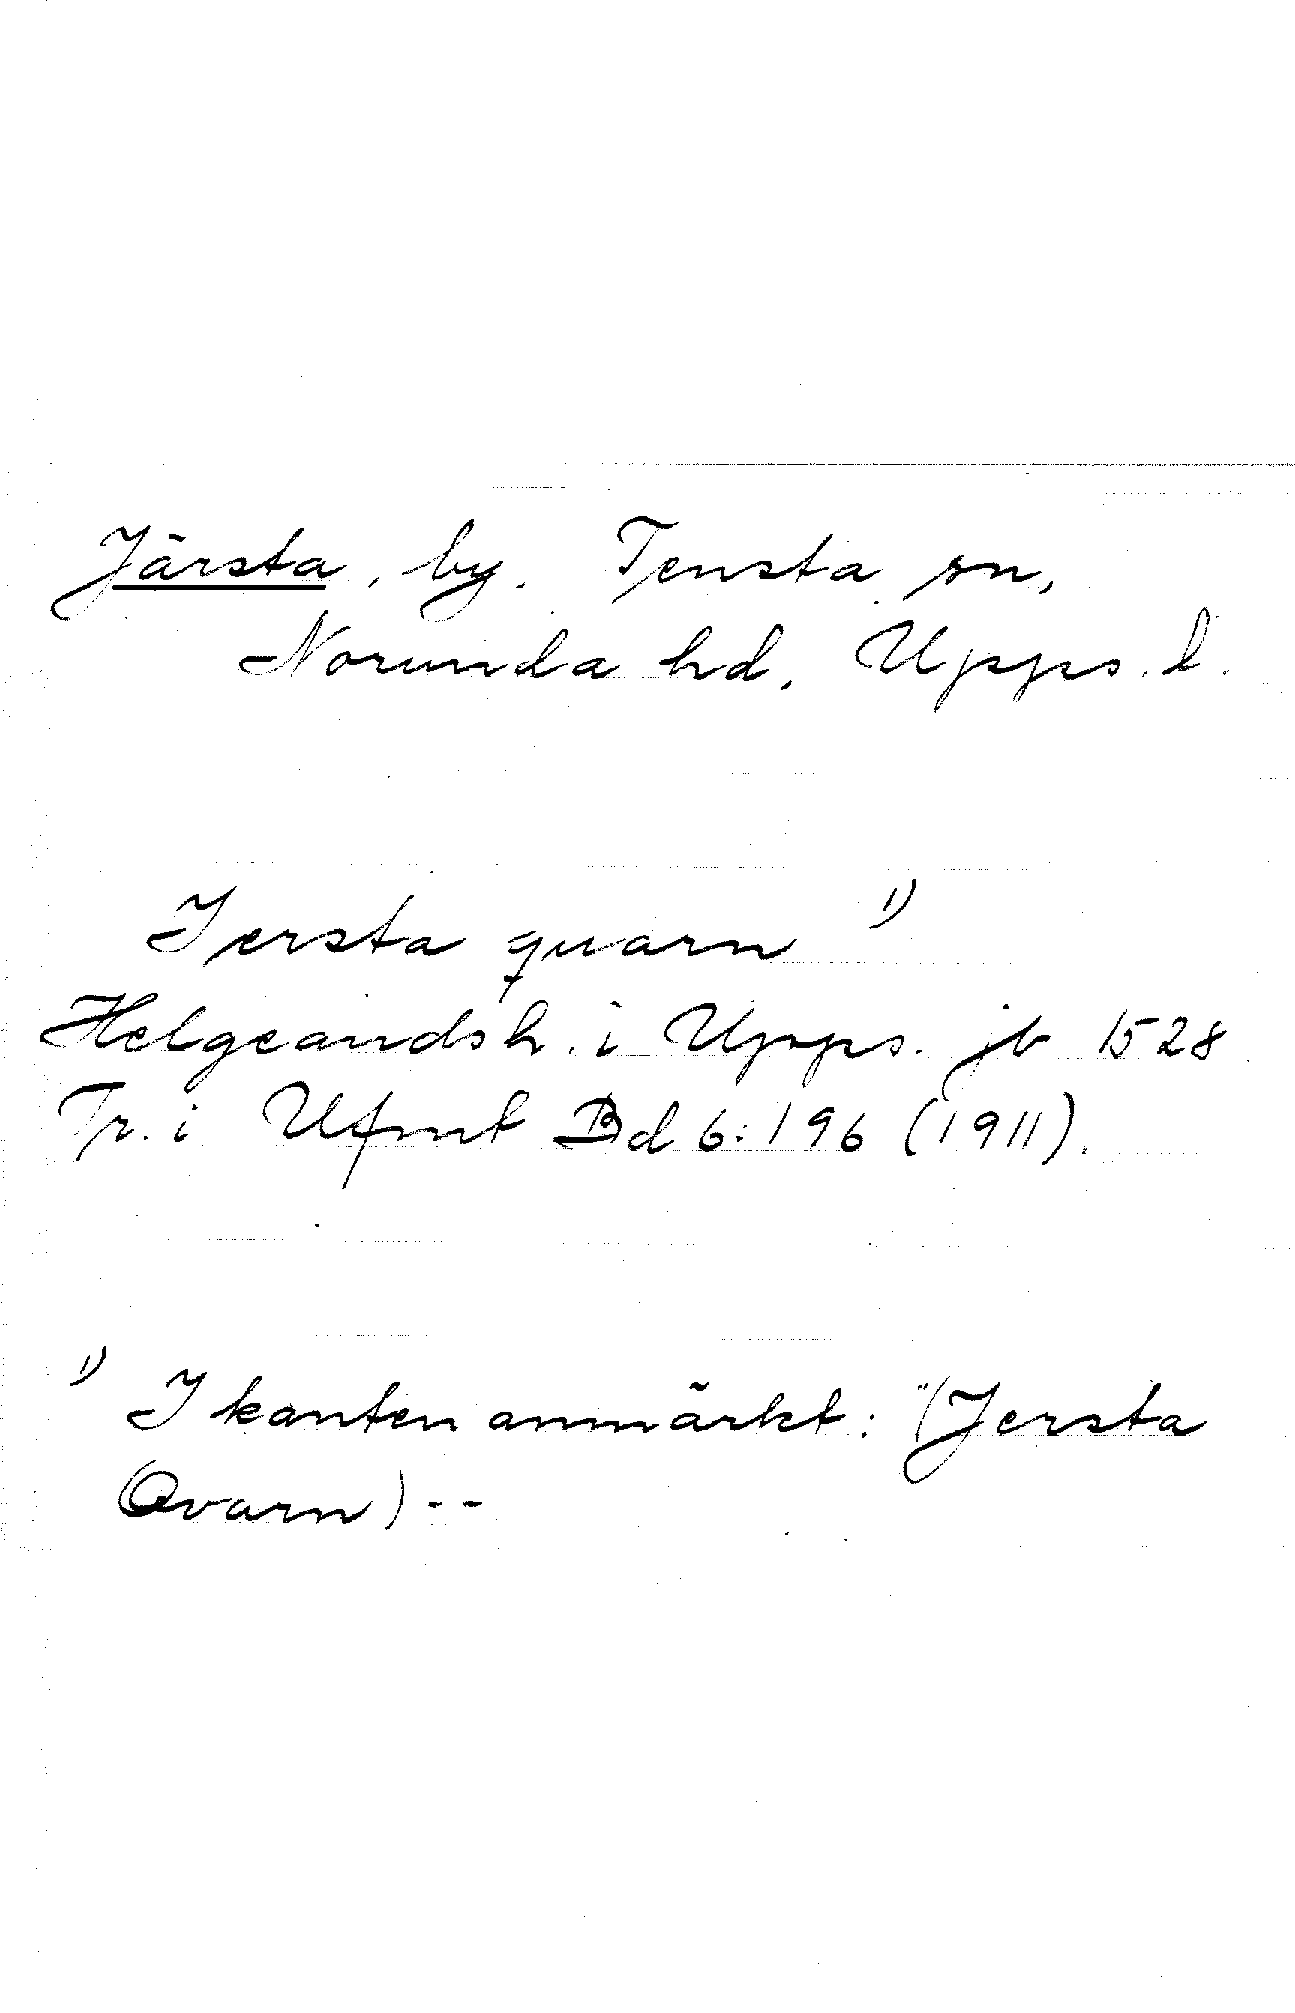 Järsta, by. Tensta sn,
Norunda hd, Upps. l.
Iersta quarn 1)
Helgeandsh. i Upps. jb 1528
Tr. i Ufmt Bd 6:196 (1911).
1) I kanten anmärkt: "(Jersta
Qvarn) --